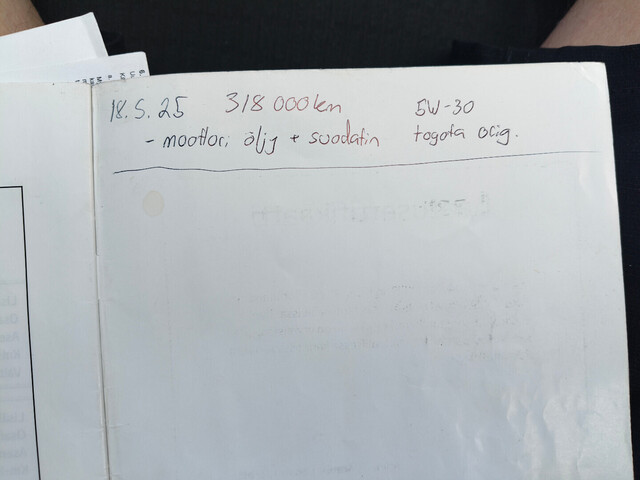 18.5.25 318 000km 5W-30
- moottori öljy + suodatin toyota orig.